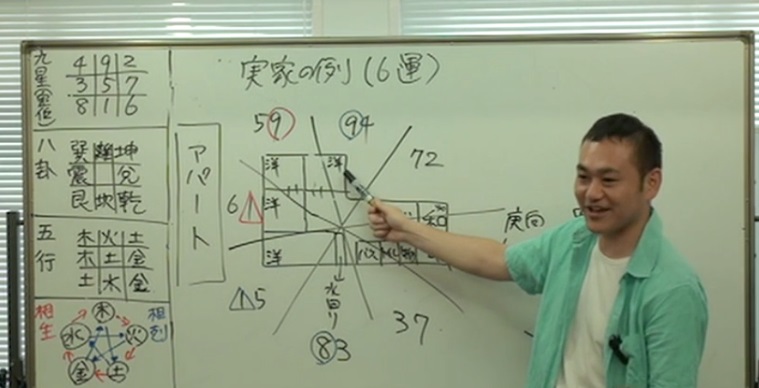 実家の例(6運)
九星(定位)
4 9 2
3 5 7
8 1 6
八卦
巽 離 坤
震 兌
艮 坎 乾
五行
木 火 土
木 土 金
土 水 金
相生
相剋
木
火
土
金
水
アパート
59
94
72
6
5
83
37
洋
洋
洋
洋
和
バス
水回り